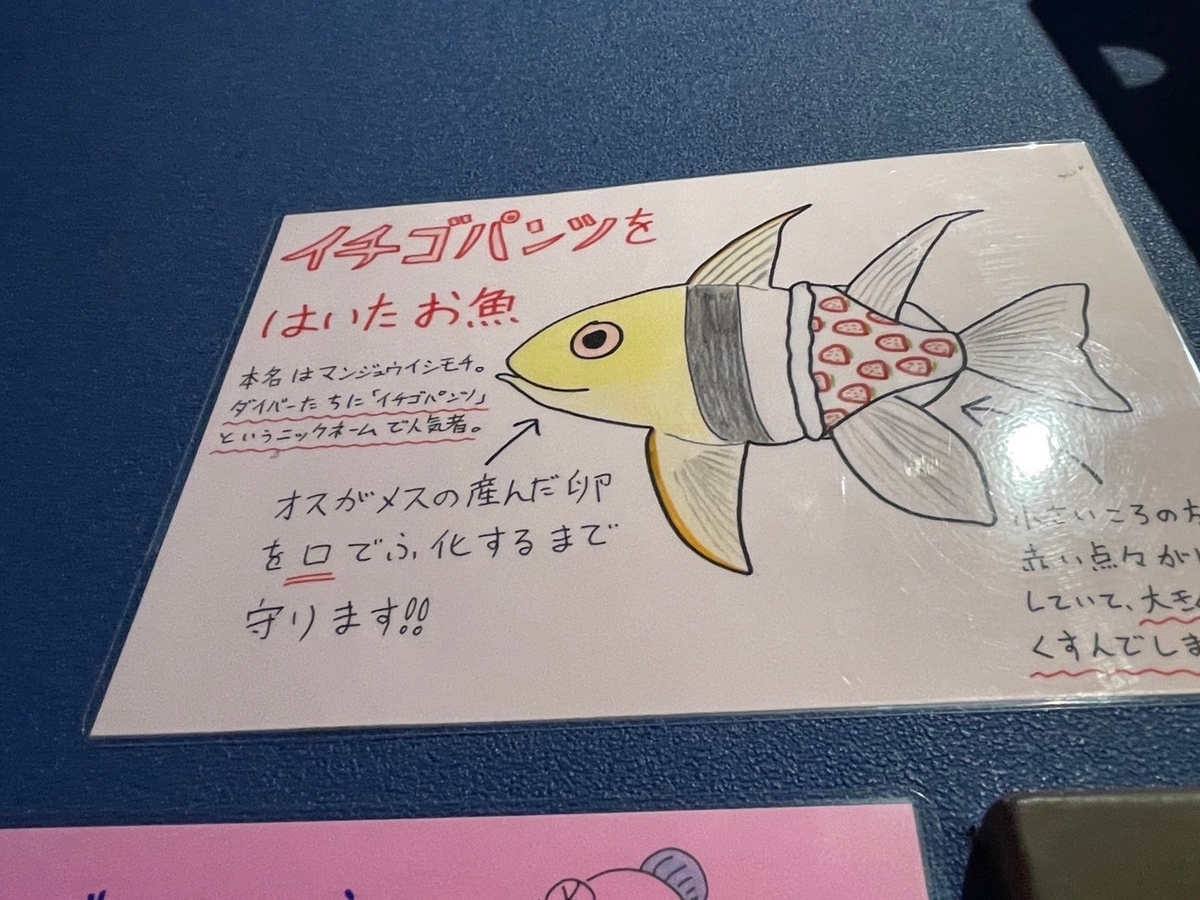 イチゴパンツを
はいたお魚
本名はマンジュウイシモチ。
ダイバーたちに「イチゴパンツ」
というニックネームで人気者。
オスがメスの産んだ卵
を口でふ化するまで
守ります!!
小さいころの方
赤い点々が
していて、大き
くすんでしま